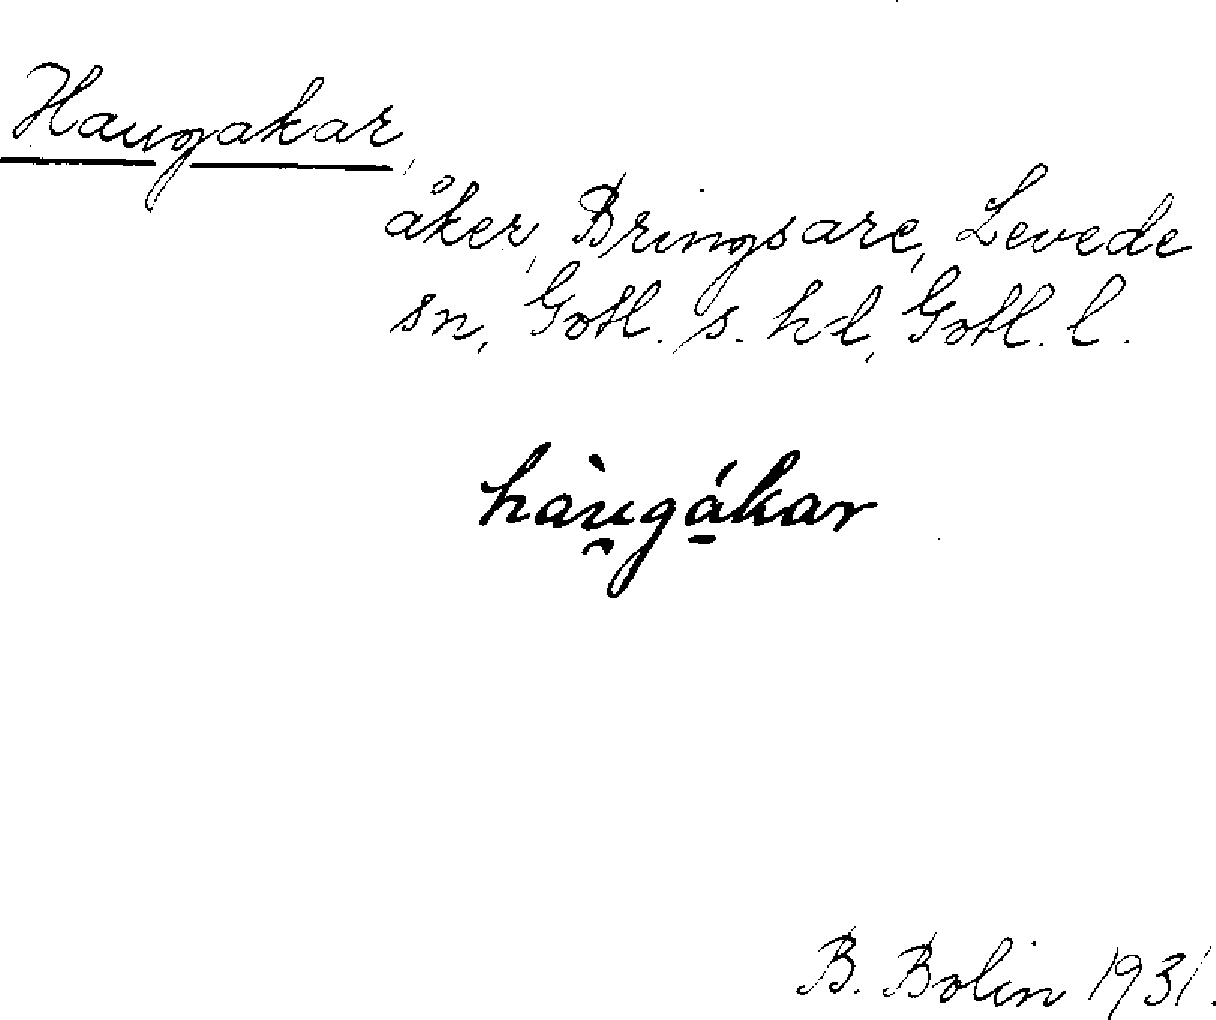 Haugakar,
åker, Bringsare, Levede
sn, Gotl. s. hd, Gotl. l.
hàu̯gá̱kar
B. Bolin 1931.